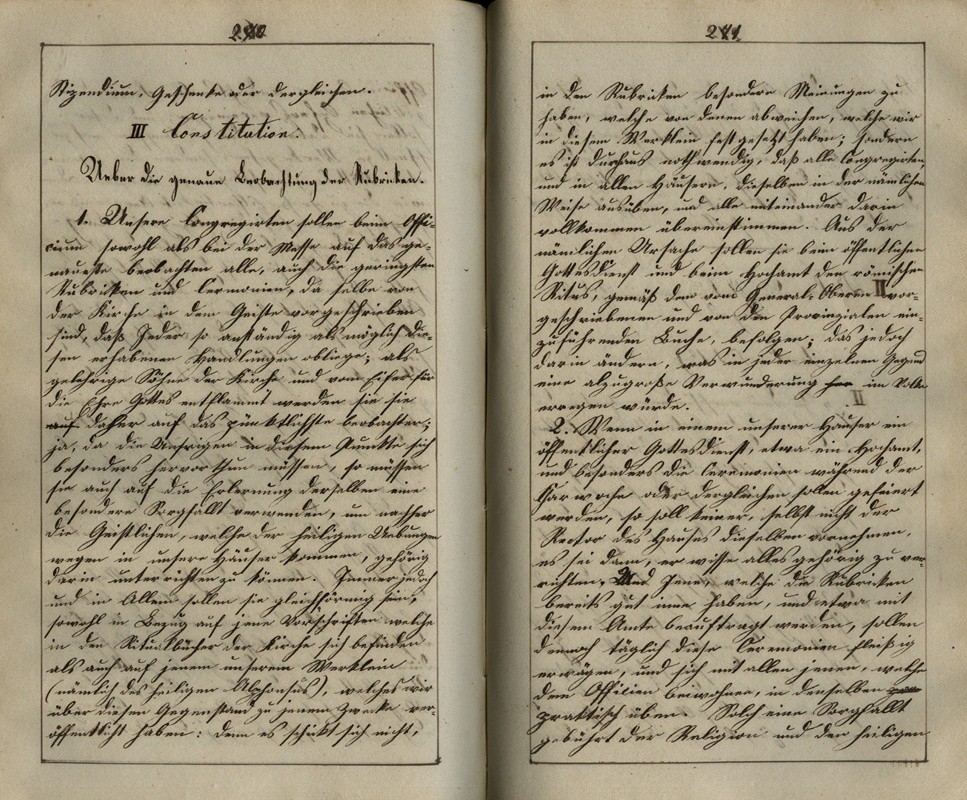 240
Stipendium, Geschenke oder dergleichen.
III Constitution.
Ueber die genaue Beobachtung der Rubriken.
1. Unsere Congregirten sollen beim Offi-
cium sowohl als bei der Messe auf das ge-
naueste beobachten alle, auch die geringsten
Rubriken und Ceremonien, da selbe von
der Kirche in dem Geiste vorgeschrieben
sind, daß Jeder so anständig als möglich die-
sen erhabenen Handlungen obliege; als
gelehrige Söhne der Kirche und vom Eifer für
die Ehre Gottes entflammt werden sie sie
auch daher auf das pünktlichste beobachten;
ja, da die Unsrigen in diesem Punkte sich
besonders hervorthun müssen, so müssen
sie auch auf die Erlernung derselben eine
besondere Sorgfallt verwenden, um nachher
die Geistlichen, welche der heiligen Uebungen
wegen in unsere Häuser kommen, gehörig
darin unterrichten zu können. Immer jedoch
und in Allem sollen sie gleichförmig sein,
sowohl in Bezug auf jene Vorschriften welche
in den Ritualbücher der Kirche sich befinden
als auch auf jenem unserem Werklein
(nämlich des heiligen Alphonsus), welches wir
über diesen Gegenstand zu jenem Zwecke ver-
öffentlicht haben: denn es schickt sich nicht,
241
in den Rubriken besondere Meinungen zu
haben, welche von denen abweichen, welche wir
in diesem Werklein festgesetzt haben; sondern
es ist durchaus nothwendig, daß alle Congregirten
und in allen Häusern, dieselben in der nämlichen
Weise ausüben, und alle miteinander darin
vollkommen übereinstimmen. Aus der
nämlichen Ursache sollen sie beim öffentlichen
Gottesdienst und beim Hochamt den römischen
Ritus, gemäß dem vom General-Oberen II vor-
geschriebenen und von den Provinzialen ein-
zuführenden Buche, befolgen; das jedoch
darin ändern, was in jeder einzelnen Gegend
eine alzugroße Verwunderung im Volke
erregen würde. II
2. Wenn in einem unserer Häuser ein
öffentlicher Gottesdienst, etwa ein Hochamt,
und besonders die Ceremonien während der
Charwoche oder dergleichen sollen gefeiert
werden, so soll keiner, selbst nicht der
Rector des Hauses dieselben vornehmen,
es sei dann, er wisse alles gehörig zu ver-
richten. Und Jene, welche die Rubriken
bereits gut inne haben, und etwa mit
diesem Amte beauftragt werden, sollen
dennoch täglich diese Ceremonien fleißig
erwägen, und sich mit allen jenen, welche
den Offizien beiwohnen, in denselben
praktisch üben. Solch eine Sorgfallt
gebührt der Religion und den heiligen